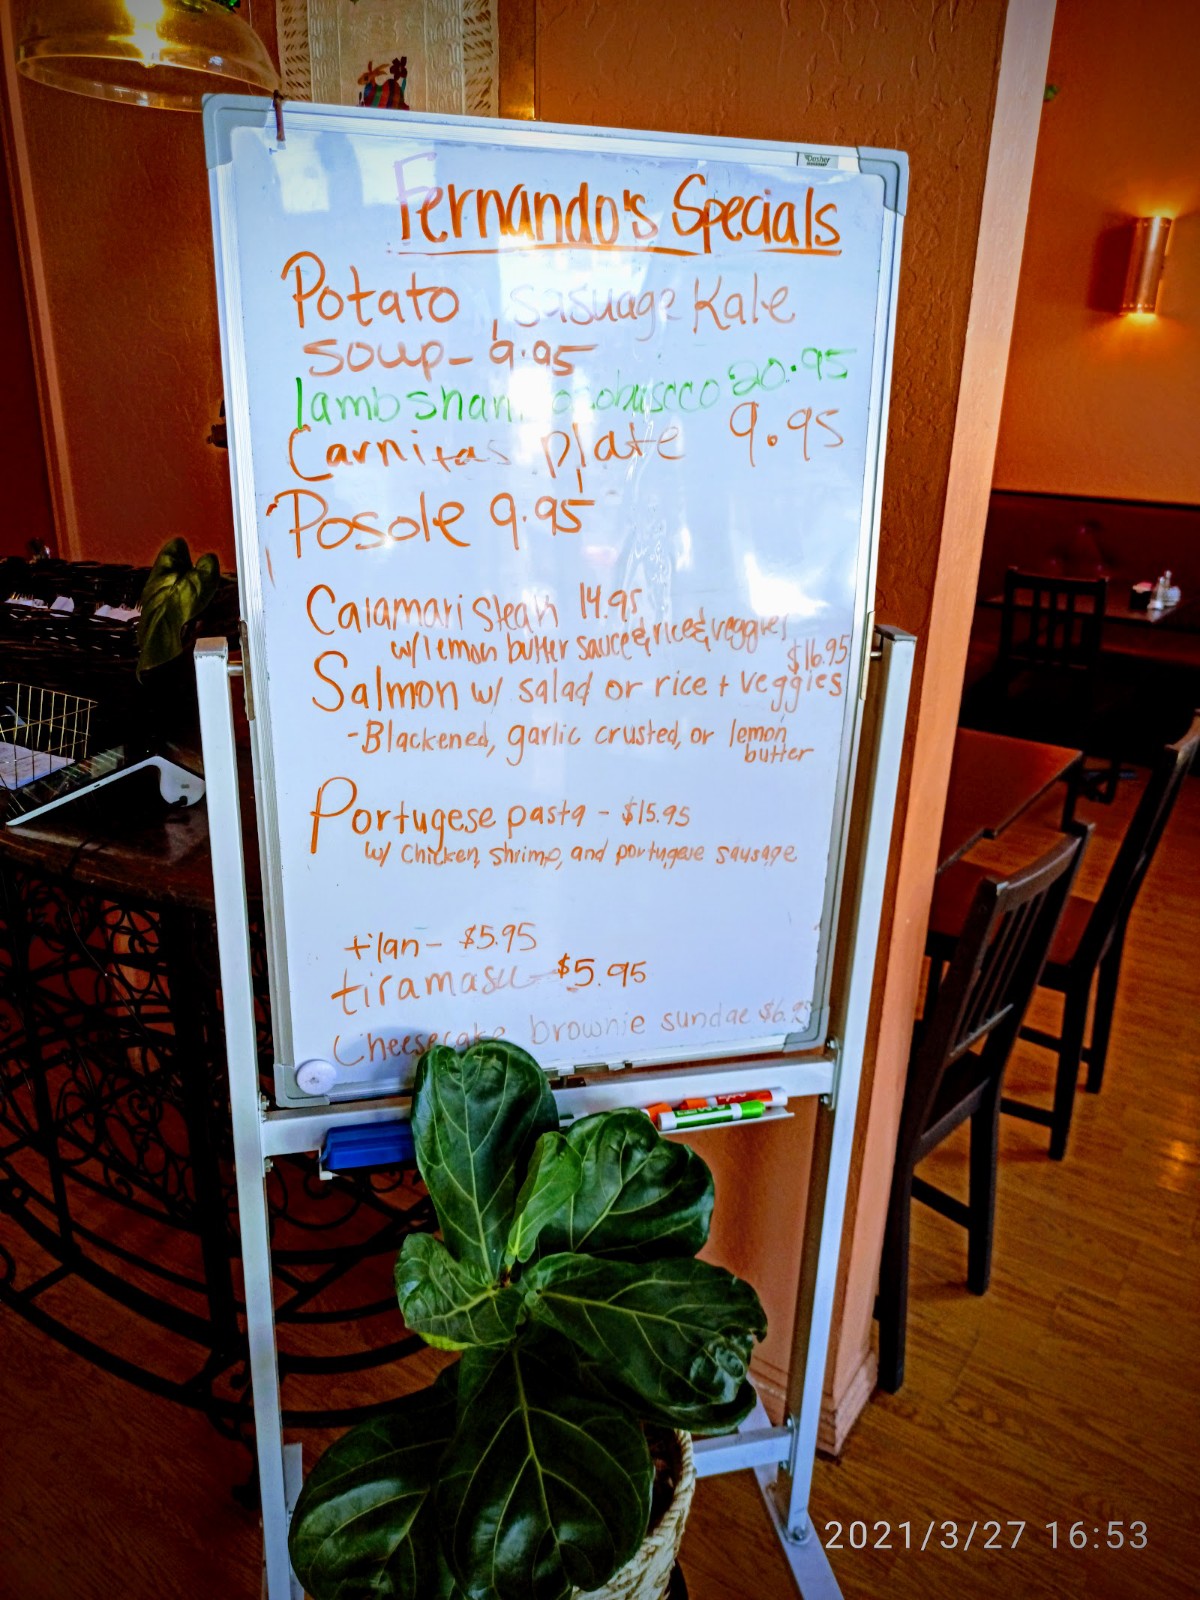 Dasher
Fernando's Specials
Potato, sasuage Kale
soup - 9.95
lamb shank 20.95
Carnitas plate 9.95
Posole 9.95
Calamari Steak 14.95
w/ lemon butter sauce & rice & veggies
$16.95
Salmon w/ salad or rice + veggies
- Blackened, garlic crusted, or lemon
butter
Portugese pasta - $15.95
w/ Chicken, shrimp, and portugese sausage
flan - $5.95
tiramasu - $5.95
Cheesecake brownie sundae
2021/3/27 16:53